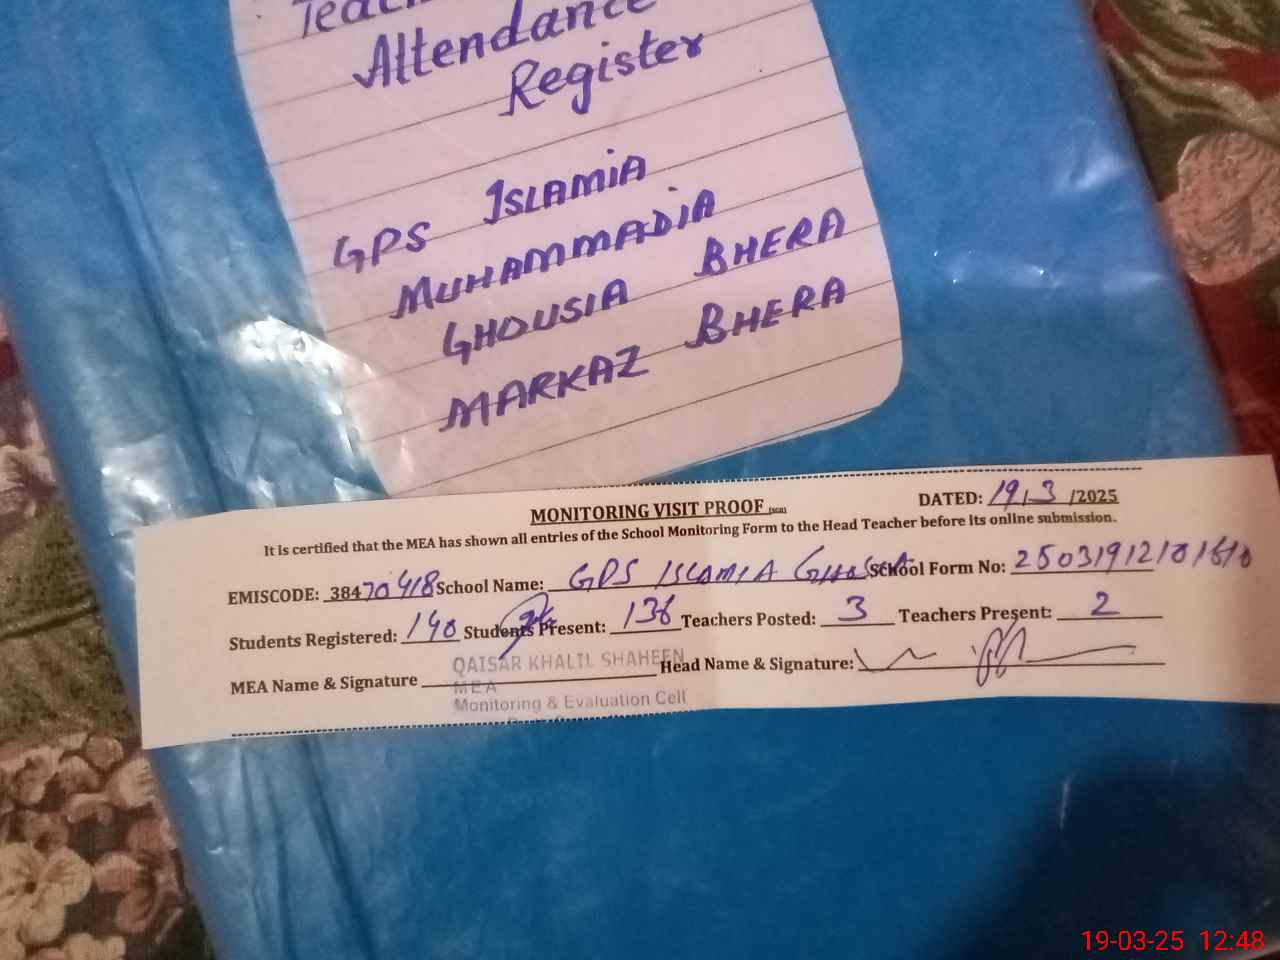 Attendance
Register
GPS ISLAMIA
MUHAMMADIA
GHOUSIA BHERA
MARKAZ BHERA
MONITORING VISIT PROOF
DATED: 19/3/2025
It is certified that the MEA has shown all entries of the School Monitoring Form to the Head Teacher before its online submission.
EMISCODE: 38470418 School Name: GPS ISLAMIA School Form No:
Students Registered: 140 Students Present: 136 Teachers Posted: 3 Teachers Present: 2
MEA Name & Signature QAISAR KHALIL SHAHEEN Head Name & Signature:
MEA
Monitoring & Evaluation Cell
19-03-25 12:48